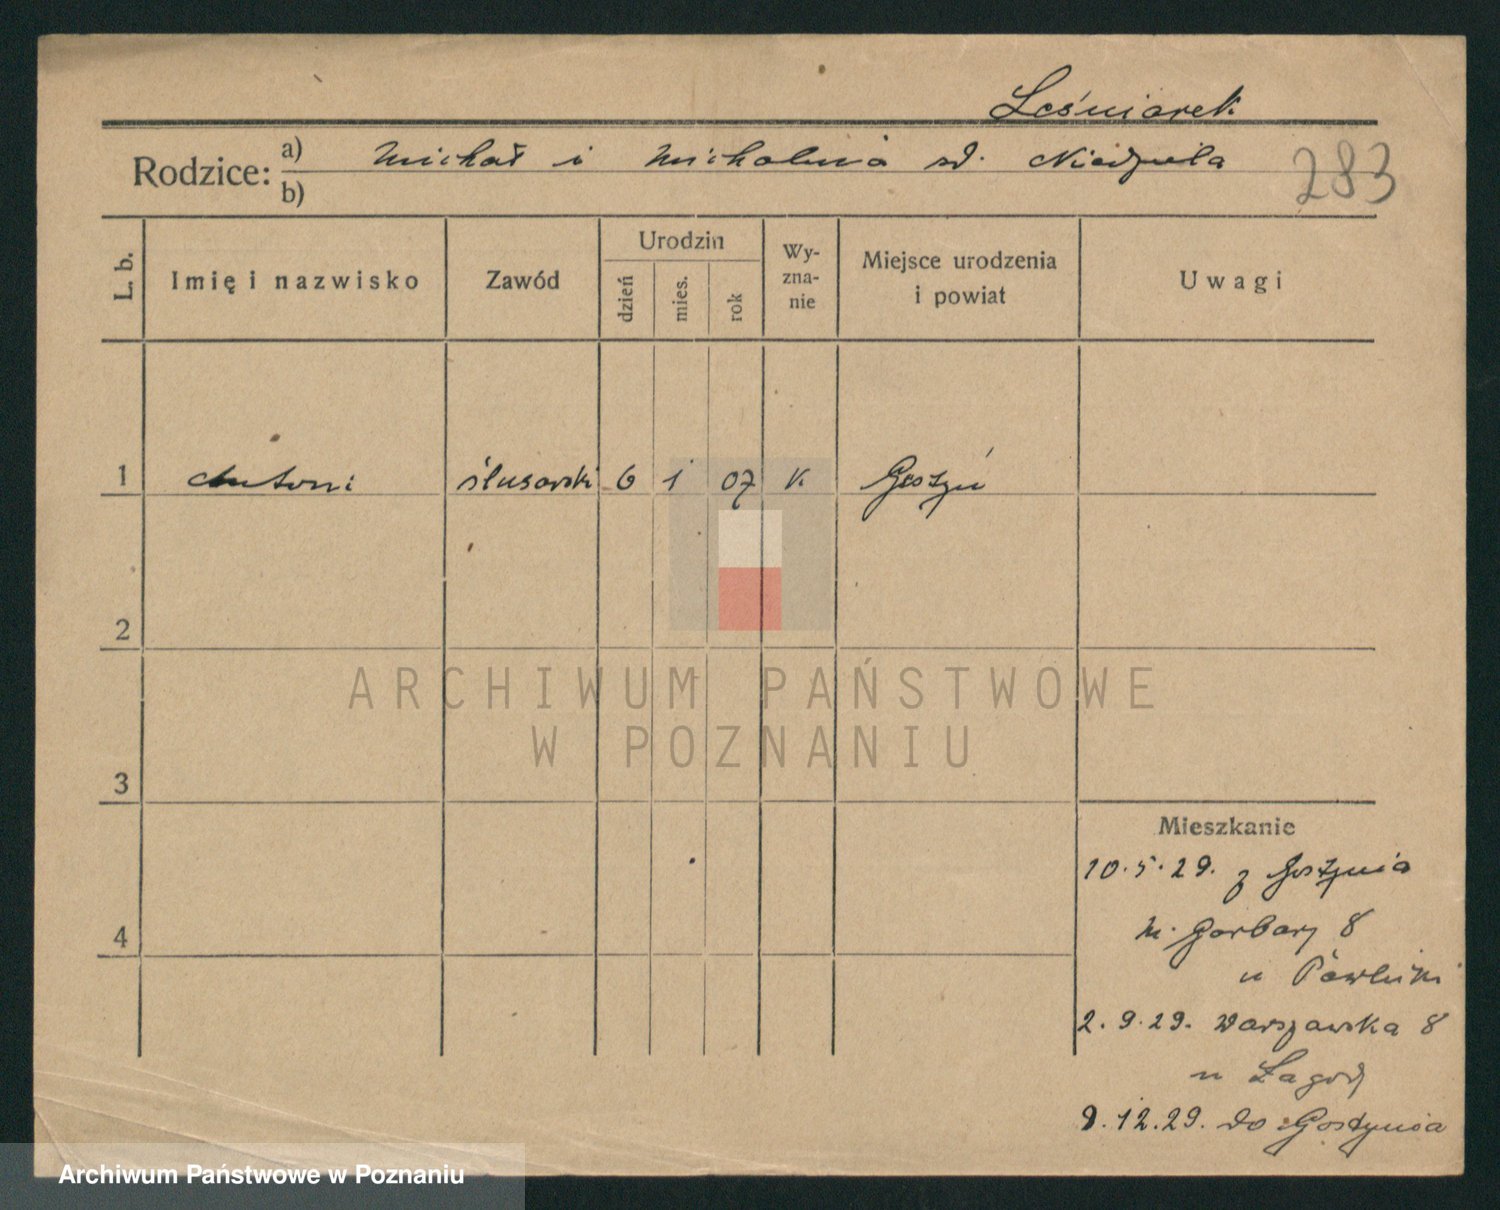 Leśniarek
Rodzice: a) Michał i Michalina zd. Niedziela
b)
283
L. b. Imię i nazwisko Zawód Urodzin dzień mies. rok Wy-zna-nie Miejsce urodzenia i powiat Uwagi
1 Antoni ślusarski 6 1 07 k. Gostyń
2
ARCHIWUM PAŃSTWOWE
W POZNANIU
3
Mieszkanie
10.5.29. z Gostynia
4
m. Garbary 8
u
2.9.29. Warszawska 8
u Łagody
9.12.29. do Gostynia
Archiwum Państwowe w Poznaniu